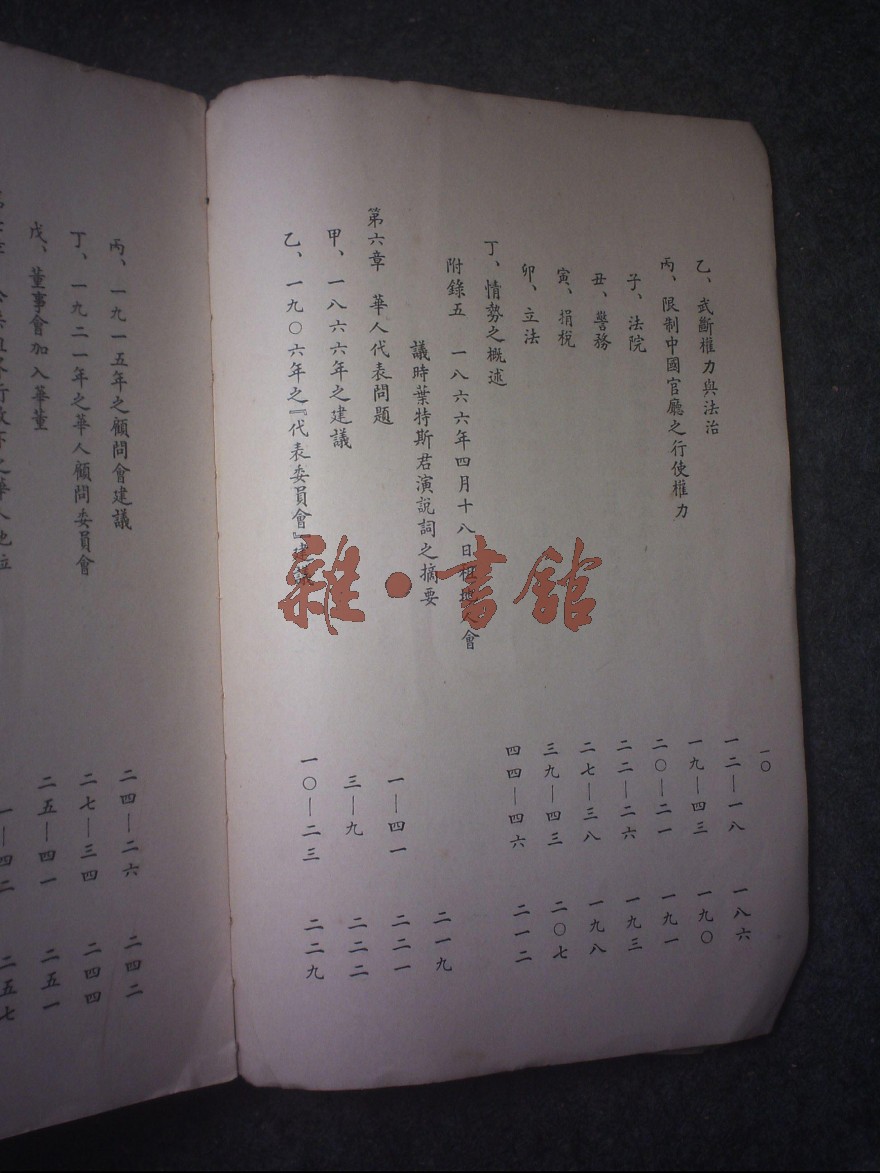 一〇
乙、武斷權力與法治 一二—一八 一八六
丙、限制中國官廳之行使權力 一九—四三 一九〇
子、法院 二〇—二一 一九一
丑、警務 二二—二六 一九三
寅、捐稅 二七—三八 一九八
卯、立法 三九—四三 二〇七
丁、情勢之概述 四四—四六 二一二
附錄五 一八六六年四月十八日租地人會
議時葉特斯君演說詞之摘要 二一九
第六章 華人代表問題 一—四一 二二一
甲、一八六六年之建議 三—九 二二二
乙、一九〇六年之『代表委員會』建議 一〇—二三 二二九
丙、一九一五年之顧問會建議 二四—二六 二四二
丁、一九二一年之華人顧問委員會 二七—三四 二四四
戊、董事會加入華董 二五—四一 二五一
行政下之華人地位 一—四二 二五七
雜·書館